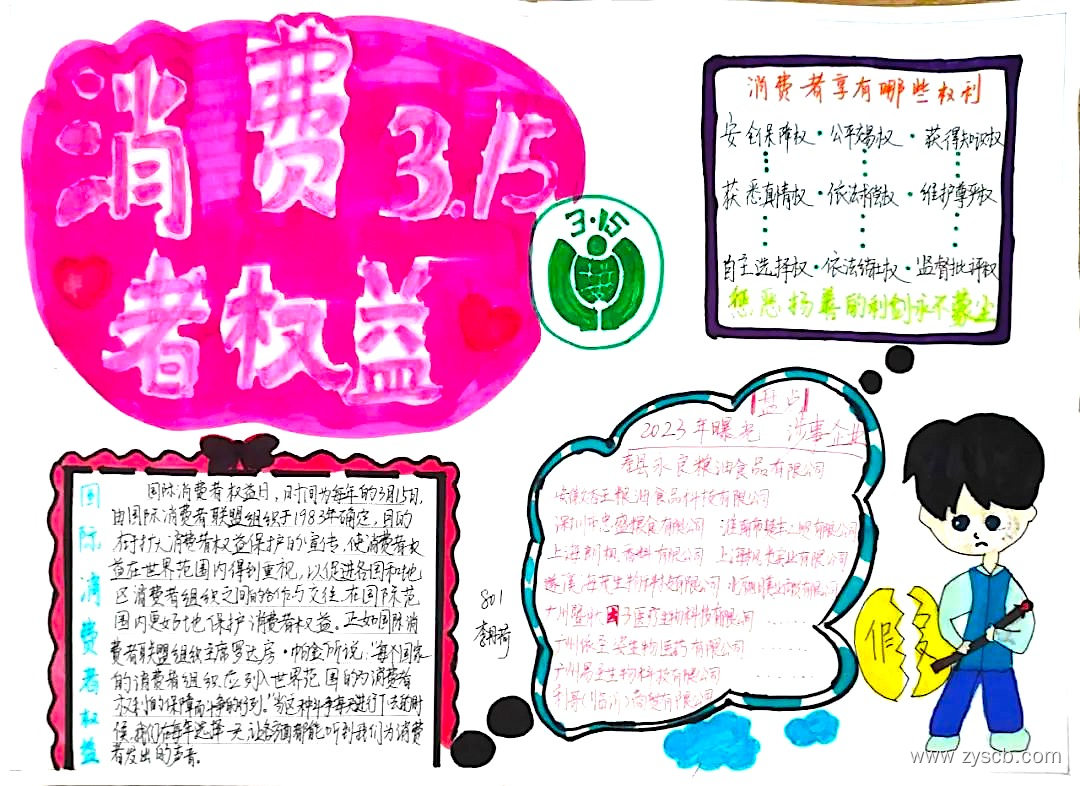 消费
3.15
者权益
3·15
消费者享有哪些权利
安全保障权·公平交易权·获得知识权
获悉真情权·依法求偿权·维护尊严权
自主选择权·依法结社权·监督批评权
惩恶扬善的利剑永不蒙尘
盘点
2023年曝光 涉事企业
寿县永良粮油食品有限公司
粮油食品科技有限公司
深圳市忠盛粮食有限公司 淮南市楚
上海 香料有限公司 上海 实业有限公司
生物科技有限公司
广州 医疗生物科技有限公司 ......
生物医药有限公司 ......
生物科技有限公司 ......
(临沂)商贸有限公司
国际消费者权益
国际消费者权益日,日时间为每年的3月15日,
由国际消费者联盟组织于1983年确定,目的
在于扩大消费者权益保护的宣传,使消费者权
益在世界范围内得到重视,以促进各国和地
区消费者组织之间的合作与交往,在国际范
围内更好地保护消费者权益。正如国际消
费者联盟组织主席罗达房·帕金所说:“每个国家
的消费者组织应列入世界范围的为消费者
权利的保障而斗争的行列。”当这种斗争来进行下去的时
候,我们在每年选择一天,让各方面都能听到我们为消费
者发出的声音。
801
假
www.zyscb.com